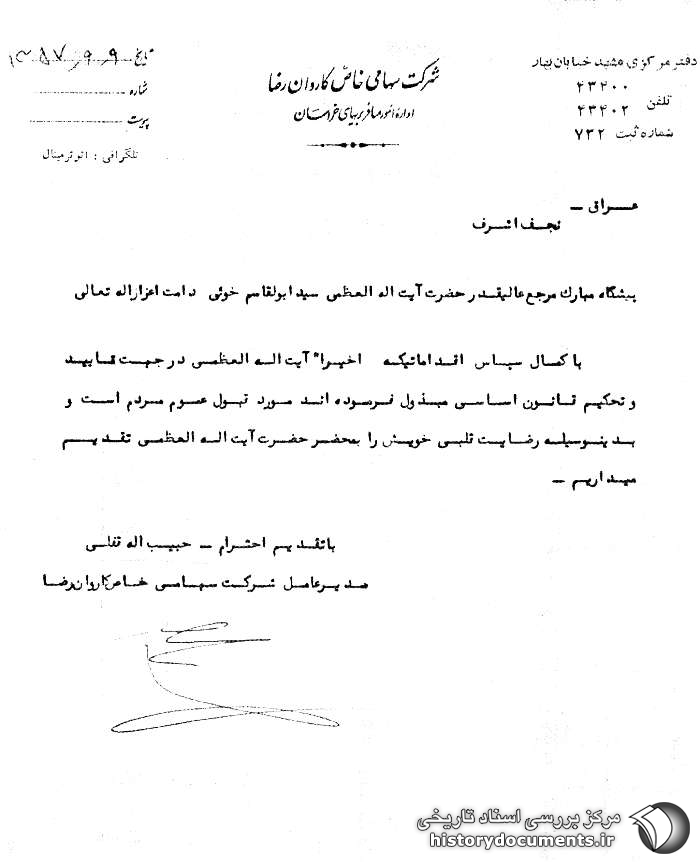 دفتر مرکزی مشهد خیابان بهار
تلفن ۴۳۴۰۰
۴۳۴۰۲
شماره ثبت ۷۳۲
شرکت سهامی خاص کاروان رضا
اداره امور مسافربریهای خراسان
تاریخ ۱۳۵۷/۹/۹
شماره
پیوست
تلگرافی : اتوترمینال
عـراق ـ
نجف اشرف
پیشگاه مبارک مرجع عالیقدر حضرت آیت اله العظمی سید ابولقاسم خوئی دامت اعزاراله تعالی
با کمال سپاس اقداماتیکه اخیرا" آیت اله العظمی در جهت تایید
و تحکیم قانون اساسی مبذول فرموده اند مورد قبول عموم مردم است و
بدینوسیله رضایت قلبی خویش را بمحضر حضرت آیت اله العظمی تقدیم
میداریم ـ
باتقدیم احترام ـ حبیب اله تفلی
مدیرعامل شرکت سهامی خاص کاروان رضا
مرکز بررسی اسناد تاریخی
historydocuments.ir